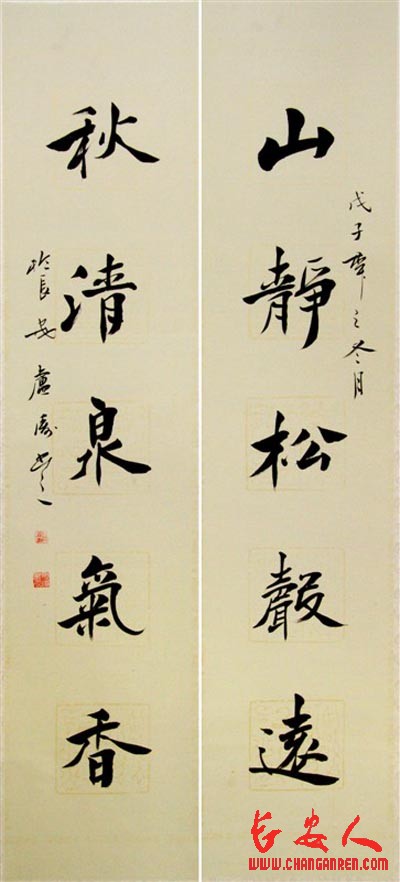 山靜松聲遠
戊子年之冬月
秋清泉氣香
於長安盧
长安人
WWW.CHANGANREN.COM